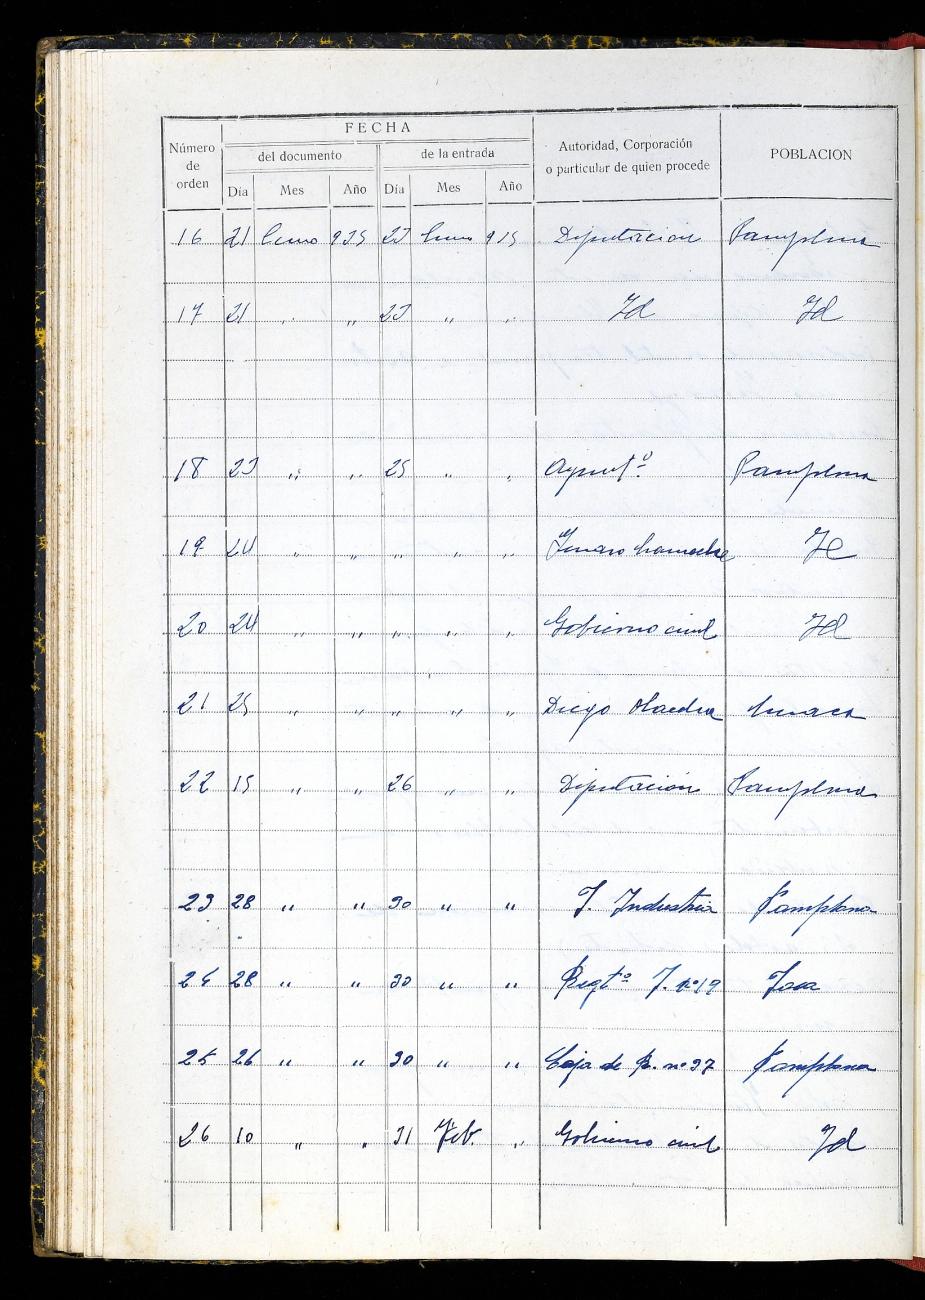 FECHA
Número de orden
del documento
de la entrada
Autoridad, Corporación o particular de quien procede
POBLACION
Día Mes Año Día Mes Año
16 21 Enero 935 23 Enero 935 Diputacion Pamplona
17 21 " " 23 " " Id Id
18 23 " " 25 " " Ayuntº Pamplona
19 24 " " " " " Id
20 24 " " " " " Gobierno civil Id
21 25 " " " " " Diego
22 15 " " 26 " " Diputacion Pamplona
23 28 " " 30 " " J. Industria Pamplona
24 28 " " 30 " " Regtº J. nº 19 Jaca
25 26 " " 30 " " Caja de R. nº 37 Pamplona
26 10 " " 31 Feb. " Gobierno civil Id